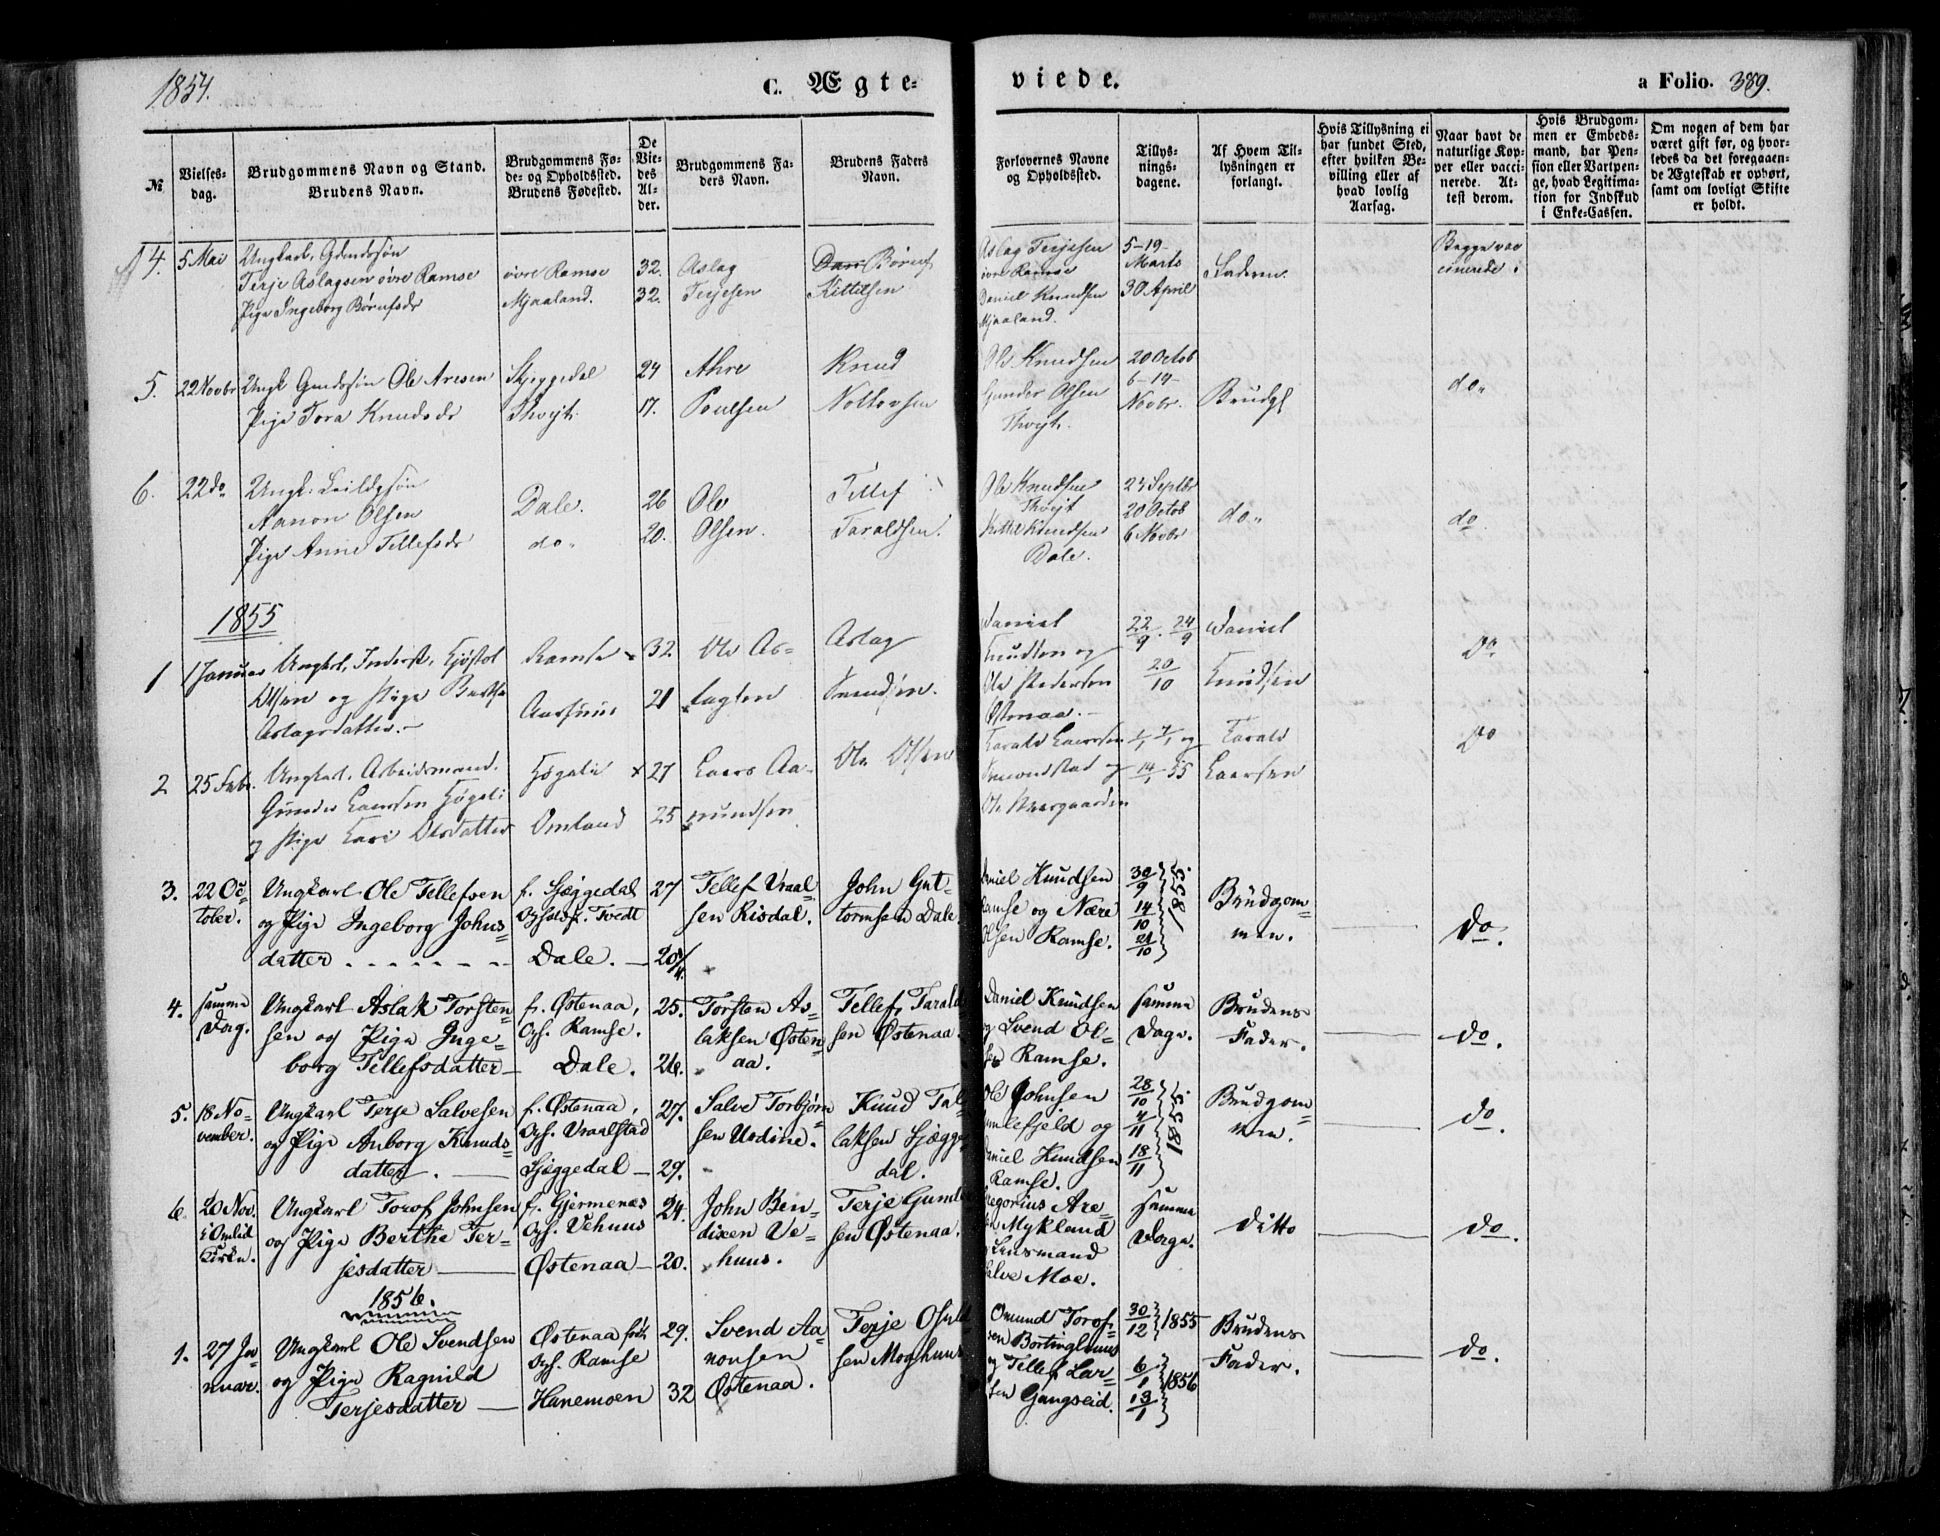 1854.
C. Ægte-
viede.
a Folio. 389.
№
Vielses-
dag.
Brudgommens Navn og Stand.
Brudens Navn.
Brudgommens Fø-
de- og Opholdssted.
Brudens Fødested.
De
Vie-
des
Al-
der.
Brudgommens Fa-
ders Navn.
Brudens Faders
Navn.
Forlovernes Navne
og Opholdssted.
Tillys-
nings-
dagene.
Af Hvem Til-
lysningen er
forlangt.
Hvis Tillysning ei
har fundet Sted,
efter hvilken Be-
villing eller af
hvad lovlig
Aarsag.
Naar havt de
naturlige Kop-
per eller vacci-
nerede. At-
test derom.
Hvis Brudgom-
men er Embeds-
mand, har Pen-
sion eller Vartpen-
ge, hvad Legitima-
tion for Indskud
i Enke-Cassen.
Om nogen af dem har
været gift før, og hvor-
ledes da det foregaaen-
de Ægteskab er ophørt,
samt om lovligt Skifte
er holdt.
4. 5 Mai
Ungkarl, Gdmdssøn
Terje Aslagsen øvre Ramse
Pige Ingeborg Børufsdr
øvre Ramse
Mjaaland.
32.
32.
Aslag
Terjesen
Dan Børuf
Kittilsen
Aslag Terjesen
øvre Ramse
Daniel Knudsen
Mjaaland.
5-19-
Marts
30 April
Faderen
Begge vac
cinerede.
5. 22 Novbr
Ungk Gmdssøn Ole Aresen
Pige Tora Knudsdr
Skjeggedal
Thvejt.
24
17.
Ahre
Poulsen
Knud
Nottovsen
Ole Knudsen
Gunder Olsen
Thvejt.
20 Octob
6-19-
Novbr.
Brudg
do.
6. 22 do
Ungk. Leilægssøn
Aanon Olsen
Pige Anne Tellefsdr
Dale.
do.
26
20.
Ole
Olsen.
Tellef
Taraldsen.
Ole Knudsen
Thvejt
Kittel Knudsen
Dale.
23 Septbr
20 Octob
6 Novbr
do.
do
1855
1 1 Januar
Ungkrl, Inderst, Gjøstol
Olsen og Pige Berthe
Aslagsdatter.-
Ramse
Aashuus
32.
21
Ole As-
lagsen
Aslag
Svendsen.
Daniel
Knudsen og
Ole Pedersen
Østenaa.-
22/9. 24/9
20/10
Daniel
Knudsen
Do
2 25 Febr.
Ungkarl, Arbeidsmand.
Gunder Laersen Høgeli
og Pige Kari Olsdatter
Høgeli
Omland
27
25
Laers Aa-
mundsen
Ole Olsen
Tarald Laersen
og
Ole Moergaarden
1/1 7/1 og
14/1 55
Tarald
Laersen
Do
3. 22 Oc-
tober.
Ungkarl Ole Tellefsen
og Pige Ingeborg Johns-
datter - - - - - -
f. Sjæggedal
Ophdst. Tvedt
Dale. -
27
20
Tellef Vraal-
sen Risdal.
John Gut-
tormsen Dale
Daniel Knudsen
Ramse og Nære
Olsen Ramse.
30/9
14/10
21/10
1855
Brudgom-
men.
Do.
4. samme
Dag.
Ungkarl Aslak Torsten-
sen og Pige Inge-
borg Tellefsdatter -
f. Østenaa,
Oph. Ramse.
Dale.
25.
26.
Torsten As-
laksen Østen-
aa.
Tellef Tarald-
sen Østenaa.
Daniel Knudsen
og Svend Ol-
sen Ramse.
samme
Dage.
Brudens
Fader.
Do.
5. 18 No-
vember.
Ungkarl Terje Salvesen
og Pige Anborg Knuds-
datter. -
f. Østenaa,
Oph. Vraalstad
Sjæggedal -
27.
29.
Salve Torbjørn-
sen Uldine.
Knud Tal-
laksen Sjægge-
dal.
Ole Johnsen
Humlefjeld og
Daniel Knudsen
Ramse.
28/10
4/11
18/11
1855.
Brudgom-
men.
Do.
6. 20 Nov.
i Omlid
Kirke.
Ungkarl Torof Johnsen
og Pige Berthe Ter-
jesdatter -
f. Gjermenæs
Oph. Vehuus
Østenaa -
24.
20.
John Ben-
dixen Ve-
huus.
Terje Gunder-
sen Østenaa.
Gregorius Are-
sen Mykland
og Lensmand
Salve Moe.
samme
Dage.
Ditto
Do.
1856.
1. 27 Ja-
nuar.
Ungkarl Ole Svendsen
og Pige Ragnild
Terjesdatter -
Østenaa født
Oph. Ramse
Hanemoen
29.
32
Svend Aa-
nonsen
Østenaa.
Terje Osuld-
sen Moghuus
Omund Torof-
sen Bortinghuus
og Tellef Lar-
sen Gangseid.
30/12 1855
6/1
13/1 1856
Brudens
Fader.
Do.